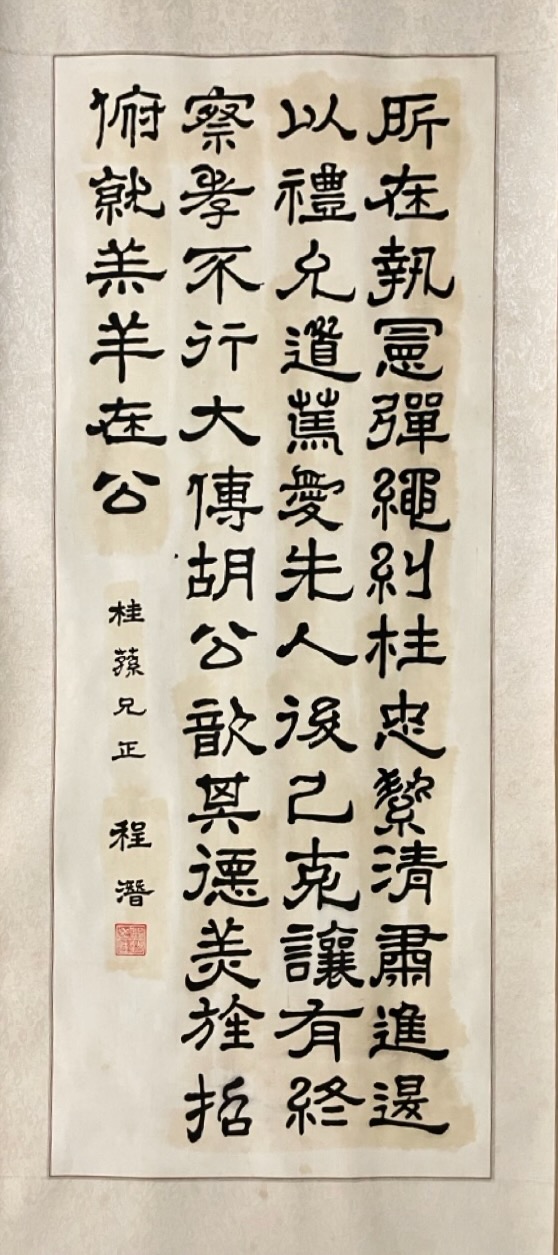 所在執憲彈繩糾枉忠絜清肅進退
以禮允道篤愛先人後己克讓有終
察孝不行大傅胡公歆其德美旌招
俯就羔羊在公
桂蓀兄正 程潛